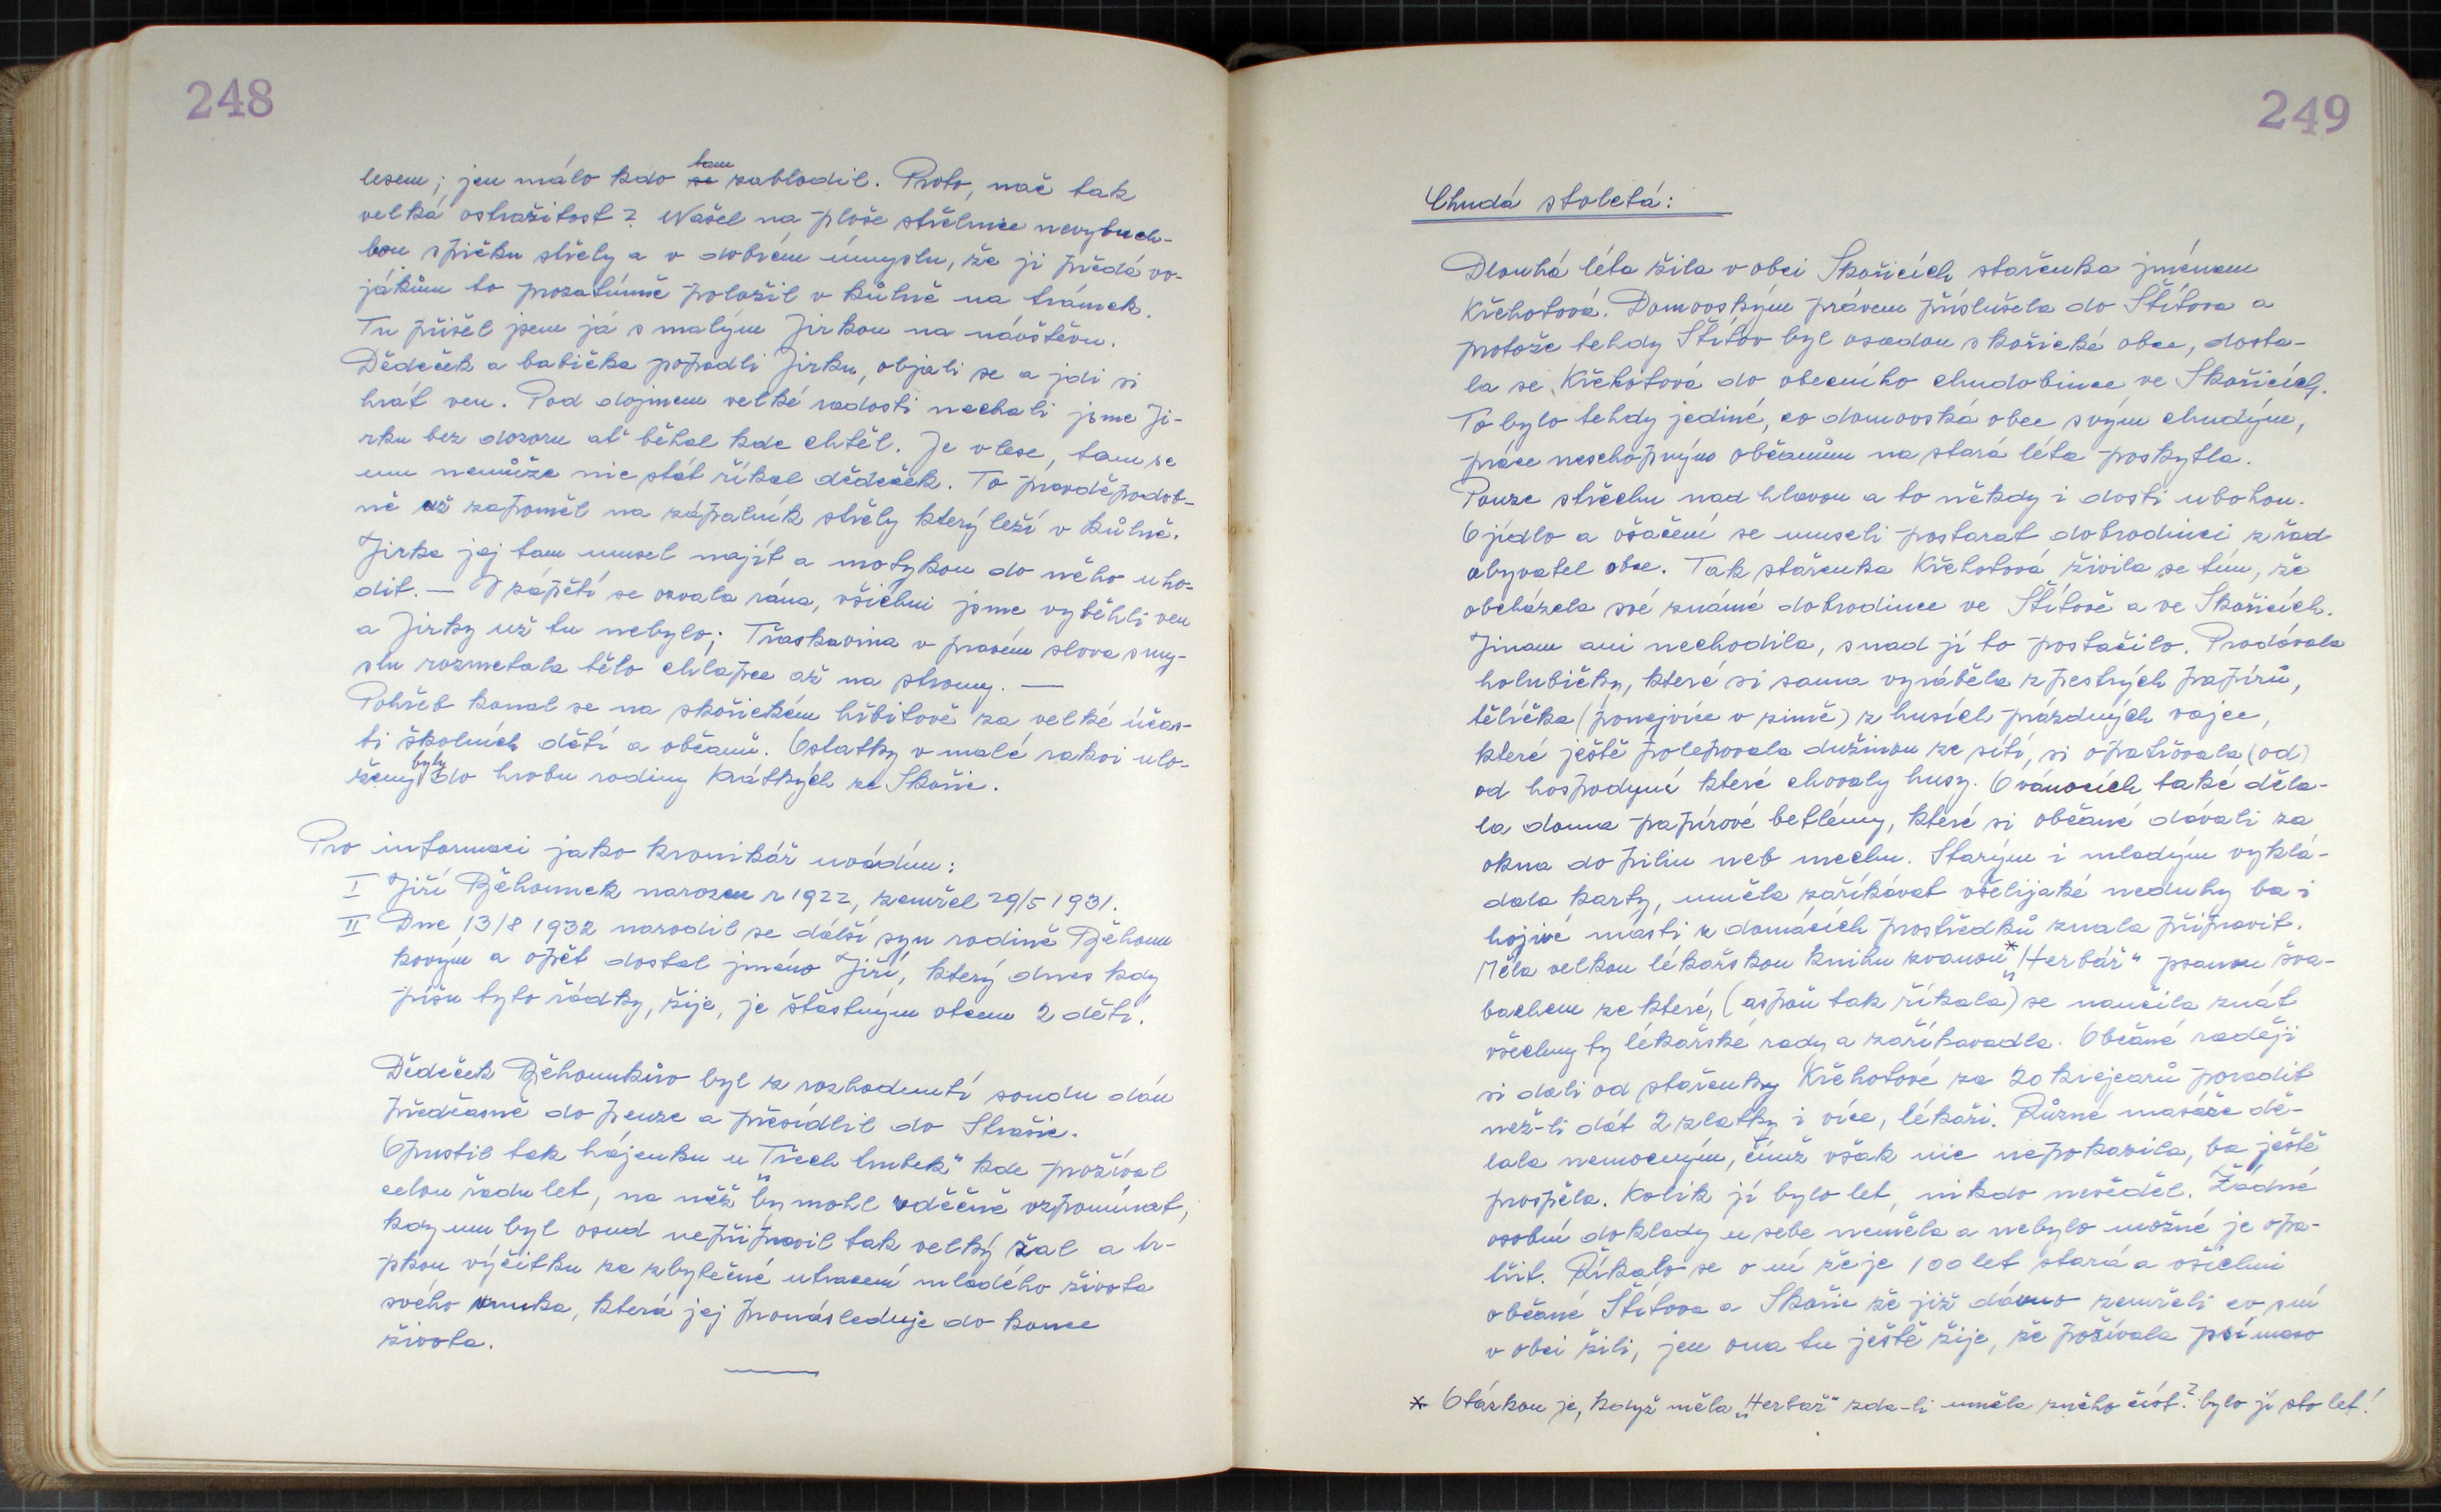 248
lesem; jen málo kdo se tam zabloudil. Proto, nač tak
velká ostražitost? Našel na ploše střelnice nevybuch-
lou špičku střely a v dobrém úmyslu, že ji předá vo-
jákům to prozatímně položil v kůlně na trámek.
Tu přišel jsem já s malým Jirkou na návštěvu.
Dědeček a babička popadli Jirku, objali se a jdi si
hrát ven. Pod dojmem velké radosti nechali jsme Ji-
rku bez dozoru ať běhal kde chtěl. Je v lese, tam se
mu nemůže nic stát říkal dědeček. To pravděpodob-
ně už zapoměl na zápalník střely který leží v kůlně.
Jirka jej tam musel najít a motykou do něho uho-
dit. — V zápětí se ozvala rána, všichni jsme vyběhli ven
a Jirky už tu nebylo; Třaskavina v pravém slova smy-
slu rozmetala tělo chlapce až na stromy. —
Pohřeb konal se na skořickém hřbitově za velké účas-
ti školních dětí a občanů. Ostatky v malé rakvi ulo-
ženy byly do hrobu rodiny Krátkých ze Skořic.
Pro informaci jako kronikář uvádím:
I Jiří Běhounek narozen r 1922, zemřel 29/5 1931.
II Dne 13/8 1932 narodil se další syn rodině Běhoun
kovým a opět dostal jméno Jiří, který dnes kdy
píšu tyto řádky, žije, je šťastným otcem 2 dětí.
Dědeček Běhounkův byl z rozhodnutí soudu dán
předčasně do penze a přesídlil do Strašic.
Opustil tak hájenku u „Třech trubek“ kde prožíval
celou řadu let, na něž by mohl vděčně vzpomínat,
kdy mu byl osud nepřipravil tak velký žal a tr-
pkou výčitku ze zbytečné utracení mladého života
svého vnuka, která jej pronásleduje do konce
života.
249
Chudá stoletá:
Dlouhá léta žila v obci Skořicích stařenka jménem
Křehotová. Domovským právem příslušela do Štítova a
protože tehdy Štítov byl osadou skořické obce, dosta-
la se Křehotová do obecního chudobince ve Skořicích.
To bylo tehdy jediné, co domovská obec svým chudým,
práce neschopným občanům na stará léta poskytla.
Pouze střechu nad hlavou a to někdy i dosti ubohou.
O jídlo a ošacení se museli postarat dobrodinci z řad
obyvatel obce. Tak stařenka Křehotová živila se tím, že
obcházela své známé dobrodince ve Štítově a ve Skořicích.
Jinam ani nechodila, snad jí to postačilo. Prodávala
holubičky, které si sama vyráběla z pestrých papírů,
tělíčka (ponejvíce v zimě) z husích prázdných vajec,
které ještě polepovala dužinou ze sítí, si opatřovala (od)
od hospodyně které chovaly husy. O vánocích také děla-
la doma papírové betlémy, které si občané dávali za
okna do pilin neb mechu. Starým i mladým vyklá-
dala karty, uměla zaříkávat všelijaké neduhy ba i
hojivé masti z domácích prostředků znala připravit.
Měla velkou lékařskou knihu zvanou* „Herbář“ psanou šva-
bachem ze které, (aspoň tak říkala) se naučila znát
všechny ty lékařské rady a zaříkavadla. Občané raději
si dali od stařenky Křehotové za 20 krejcarů poradit
než-li dát 2 zlatky i více, lékaři. Různé masáže dě-
lala nemocným, čímž však nic nepokazila, ba ještě
prospěla. Kolik jí bylo let, nikdo nevěděl. Žádné
osobní doklady u sebe neměla a nebylo možné je opa-
třit. Říkalo se o ní že je 100 let stará a všichni
občané Štítova a Skořic že již dávno zemřeli co s ní
v obci žili, jen ona tu ještě žije, že požívala psí maso
* Otázkou je, když měla „Herbář“ zda-li uměla z něho číst? bylo jí sto let!